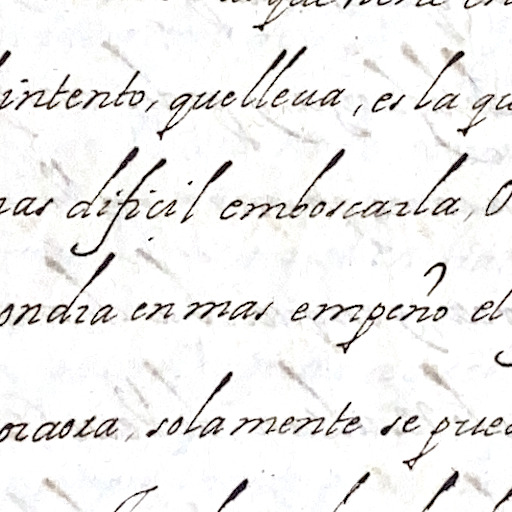 intento, quelleua, es la qu
as dificil emboscarla, O
ondra en mas empeño el
solamente se pued